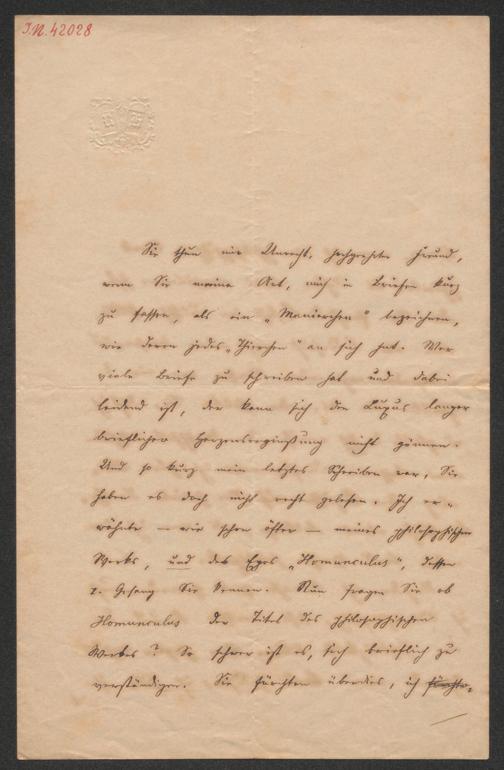 I.N. 42028
Sie thun mir Unrecht, hochgeehrter Freund,
wenn Sie meine Art, mich in Briefen kurz
zu fassen, als ein „Manierchen" bezeichnen,
wie deren jedes „Thierchen" an sich hat. Wer
viele Briefe zu schreiben hat und dabei
leidend ist, der kann sich den Luxus langer
brieflicher Herzensergießung nicht gönnen.
Und so kurz mein letztes Schreiben war, Sie
haben es doch nicht recht gelesen. Ich er-
wähnte — wie schon öfter — meines philosophischen
Werks, und des Epos „Homunculus", dessen
1. Gesang Sie kennen. Nun fragen Sie ob
Homunculus der Titel des philosophischen
Werkes? So schwer ist es, sich brieflich zu
verständigen. Sie fürchten überdies, ich